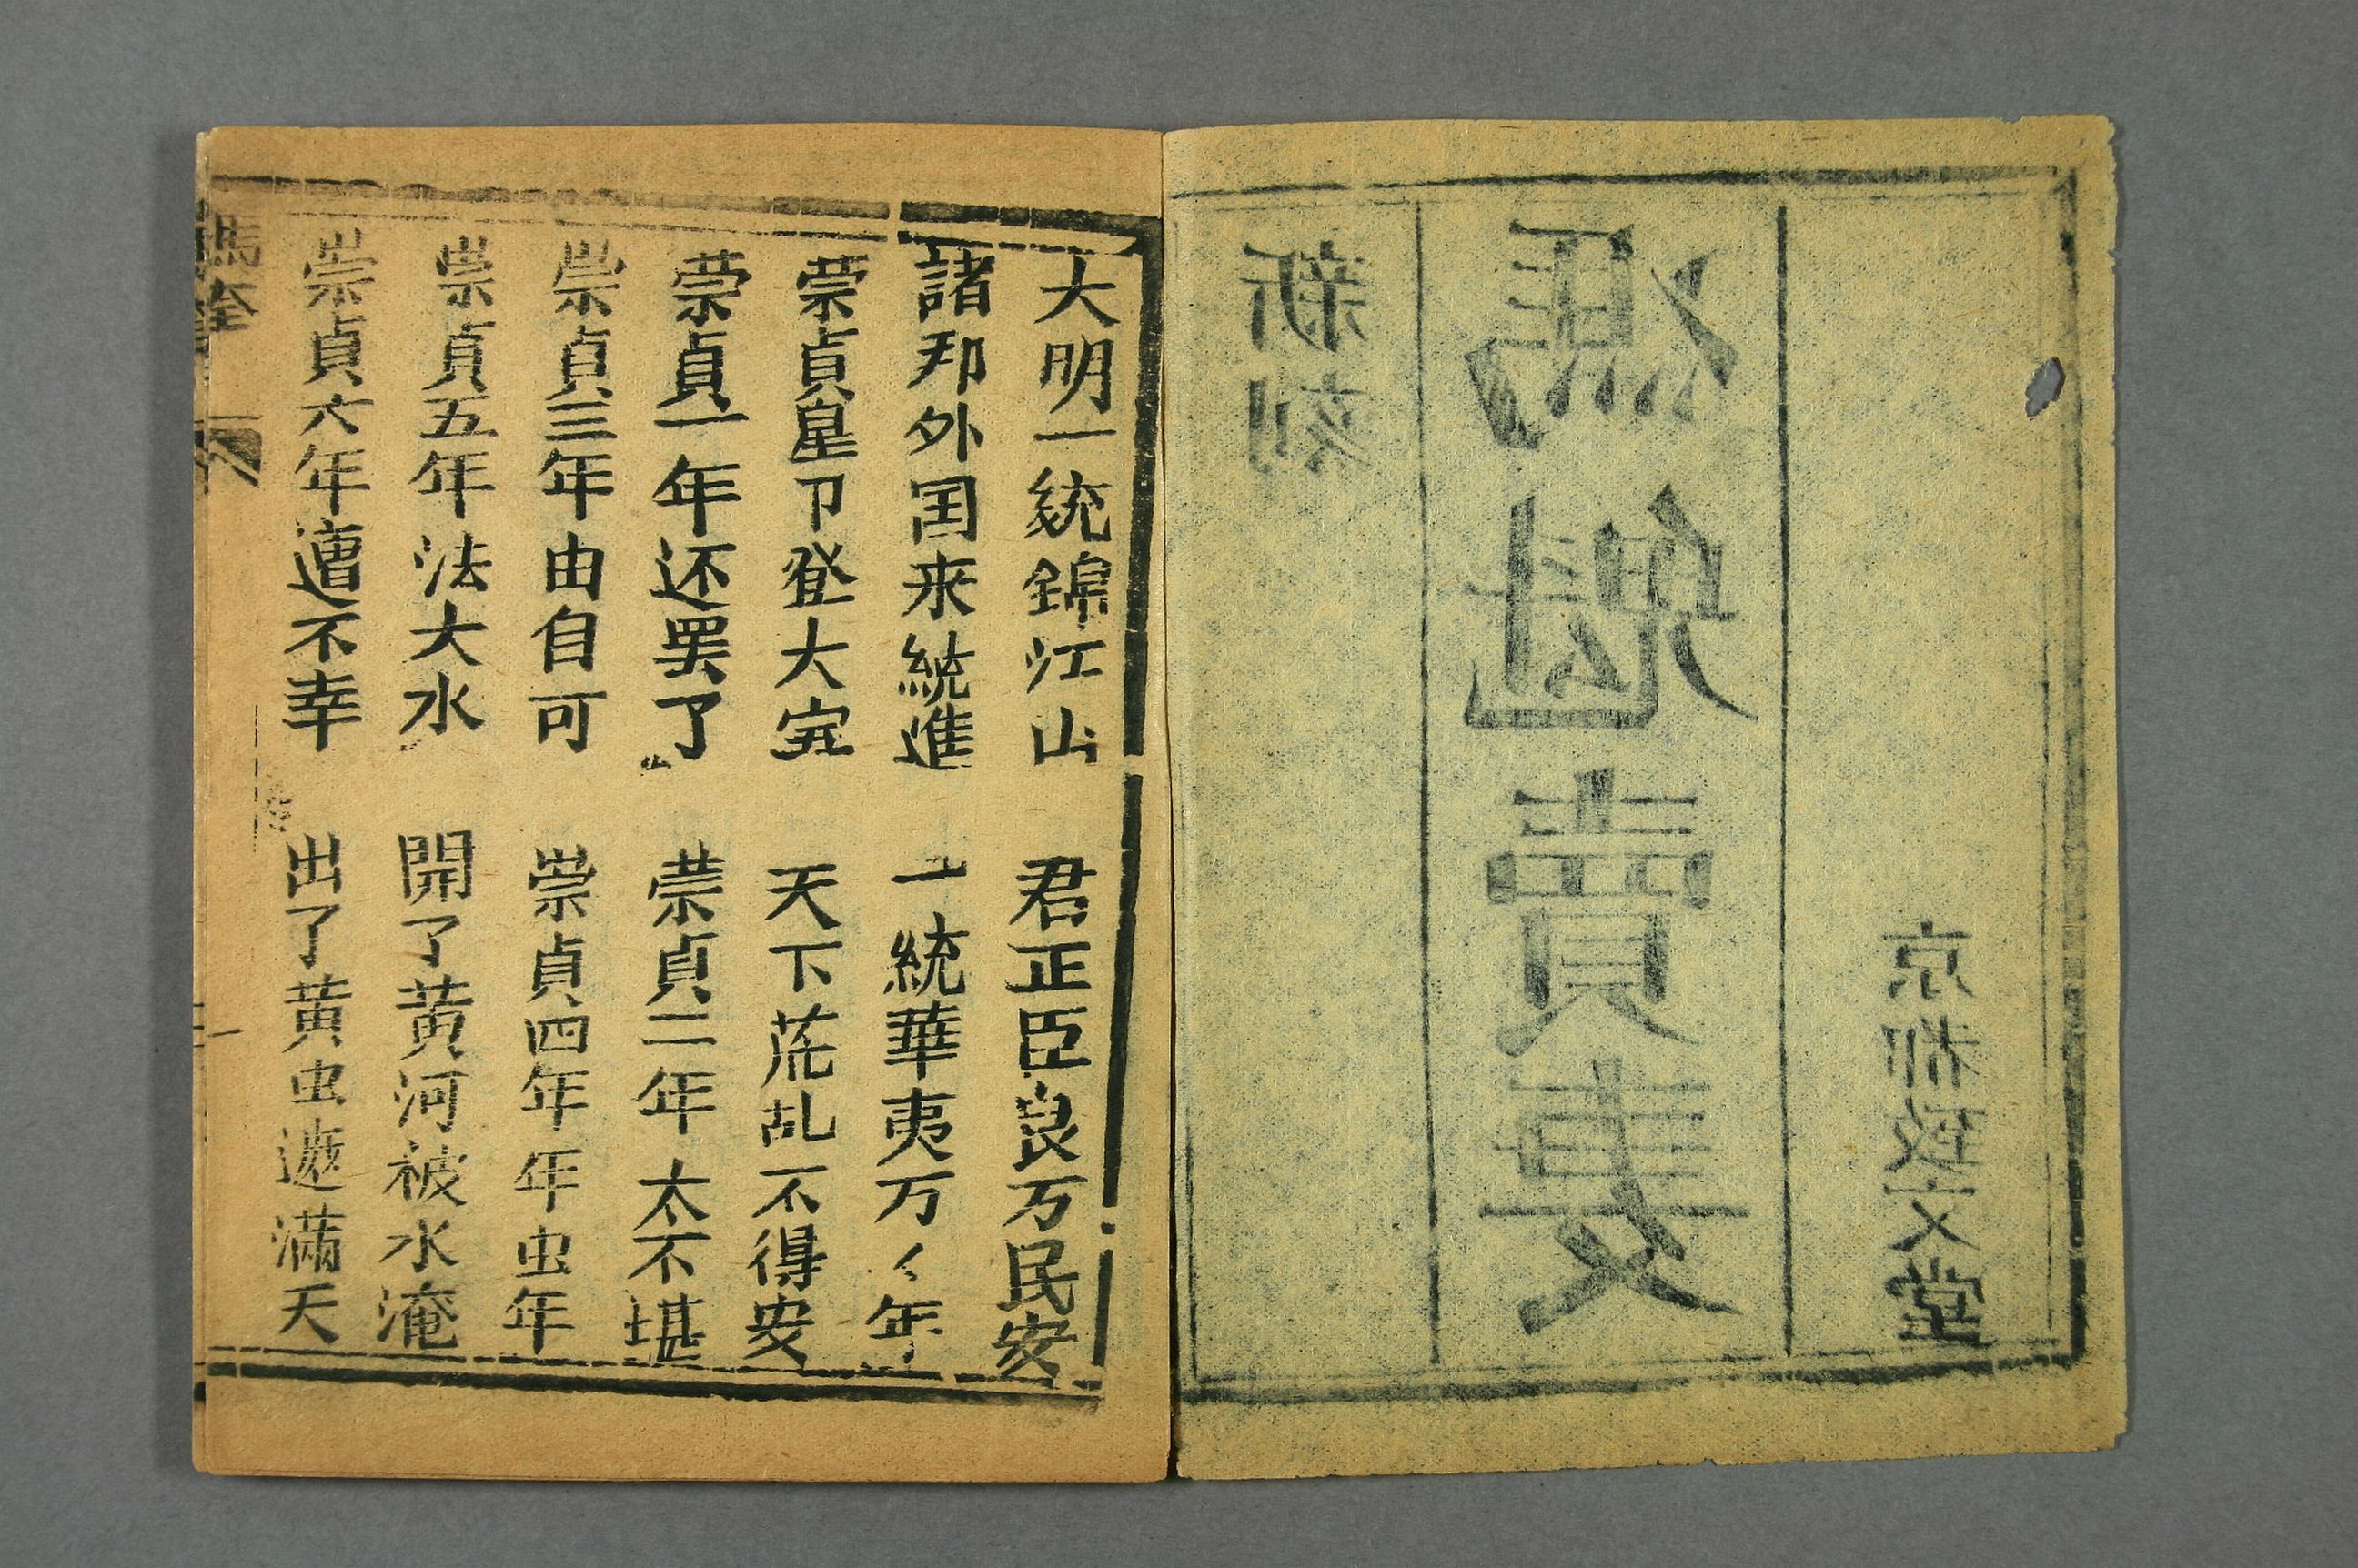 新刻
馮魁賣妻
京都致文堂
大明一統錦江山 君正臣良万民安
諸邦外国来統進 一統華夷万々年
崇貞皇卩登大宝 天下荒乱不得安
崇貞一年还罢了 崇貞二年太不堪
崇貞三年由自可 崇貞四年年虫年
崇貞五年法大水 開了黃河被水淹
崇貞六年遭不幸 出了黃虫遮滿天
馮奎
一